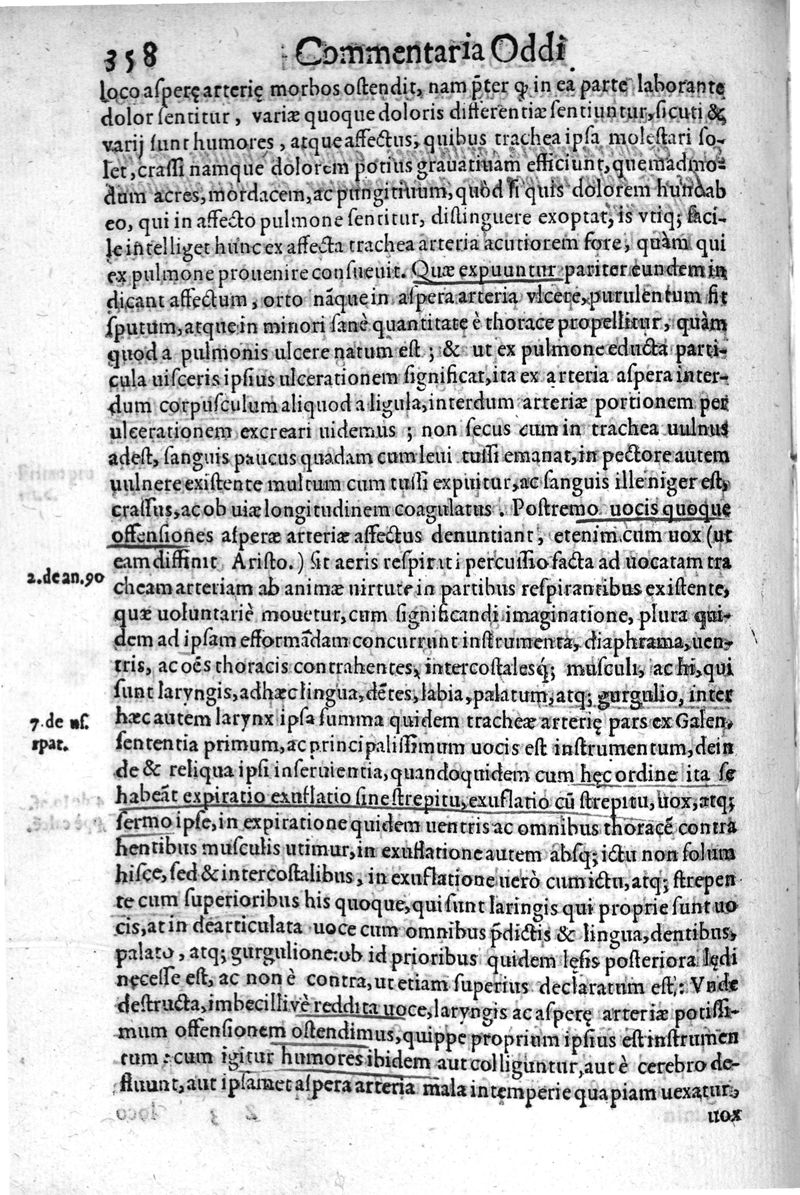 358 Commentaria Oddi
loco asperę arterię morbos ostendit, nam p̃ter ꝙ in ea parte laborante
dolor sentitur, variæ quoque doloris differentiæ sentiuntur, sicuti &
varij sunt humores, atque affectus, quibus trachea ipsa molestari so-
let, crassi namque dolorem potius grauatiuam efficiunt, quemadmo-
dum acres, mordacem, ac pungitiuum, quòd si quis dolorem hunc ab
eo, qui in affecto pulmone sentitur, distinguere exoptat, is vtiq; faci-
le intelliget hunc ex affecta trachea arteria acutiorem fore, quàm qui
ex pulmone prouenire consueuit. Quæ expuuntur pariter eundem in
dicant affectum, orto nãque in aspera arteria vlcere, purulentum fit
sputum, atque in minori sanè quantitate è thorace propellitur, quàm
quod a pulmonis ulcere natum est; & ut ex pulmone educta parti-
cula uisceris ipsius ulcerationem significat, ita ex arteria aspera inter-
dum corpusculum aliquod a ligula, interdum arteriæ portionem per
ulcerationem excreari uidemus; non secus cum in trachea uulnus
adest, sanguis paucus quadam cum leui tussi emanat, in pectore autem
uulnere existente multum cum tussi expuitur, ac sanguis ille niger est,
crassus, ac ob uiæ longitudinem coagulatus. Postremo uocis quoque
offensiones asperæ arteriæ affectus denuntiant, etenim cum uox (ut
eam diffinit Aristo.) sit aeris respirati percussio facta ad uocatam tra
2. de an. 90
cheam arteriam ab animæ uirtute in partibus respirantibus existente,
quæ uoluntariè mouetur, cum significandi imaginatione, plura qui-
dem ad ipsam efformãdam concurrunt instrumenta, diaphrama, uen-
tris, ac oẽs thoracis contrahentes, intercostalesq́; musculi, ac hi, qui
sunt laryngis, adhæc lingua, dẽtes, labia, palatum, atq; gurgulio, inter
hæc autem larynx ipsa summa quidem tracheæ arterię pars ex Galen.
7. de us.
rpat.
sententia primum, ac principalissimum uocis est instrumentum, dein
de & reliqua ipsi inseruientia, quandoquidem cum hęc ordine ita se
habeãt expiratio exuflatio sine strepitu, exuflatio cũ strepitu, uox, atq;
sermo ipse, in expiratione quidem uentris ac omnibus thoracẽ contra
hentibus musculis utimur, in exuflatione autem absq; ictu non solum
hisce, sed & intercostalibus, in exuflatione uerò cum ictu, atq; strepen
te cum superioribus his quoque, qui sunt laringis qui proprie sunt uo
cis, at in dearticulata uoce cum omnibus p̃dictis & lingua, dentibus,
palato, atq; gurgulione: ob id prioribus quidem lęsis posteriora lędi
necesse est, ac non è contra, ut etiam superius declaratum est,: Vnde
destructa, imbecilli vè reddita uoce, laryngis ac asperę arteriæ potissi-
mum offensionem ostendimus, quippe proprium ipsius est instrumen
tum: cum igitur humores ibidem aut colliguntur, aut è cerebro de-
fluunt, aut ipsamet aspera arteria mala intemperie quapiam uexatur,
uox